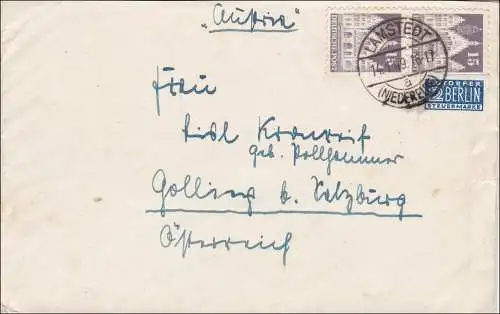 „Austria"
15
LAMSTEDT
a
(NIEDERELBE)
NOTOPFER
2 BERLIN
STEUERMARKE
Frau
Lisl
geb. Pollhammer
Golling b. Salzburg
Österreich